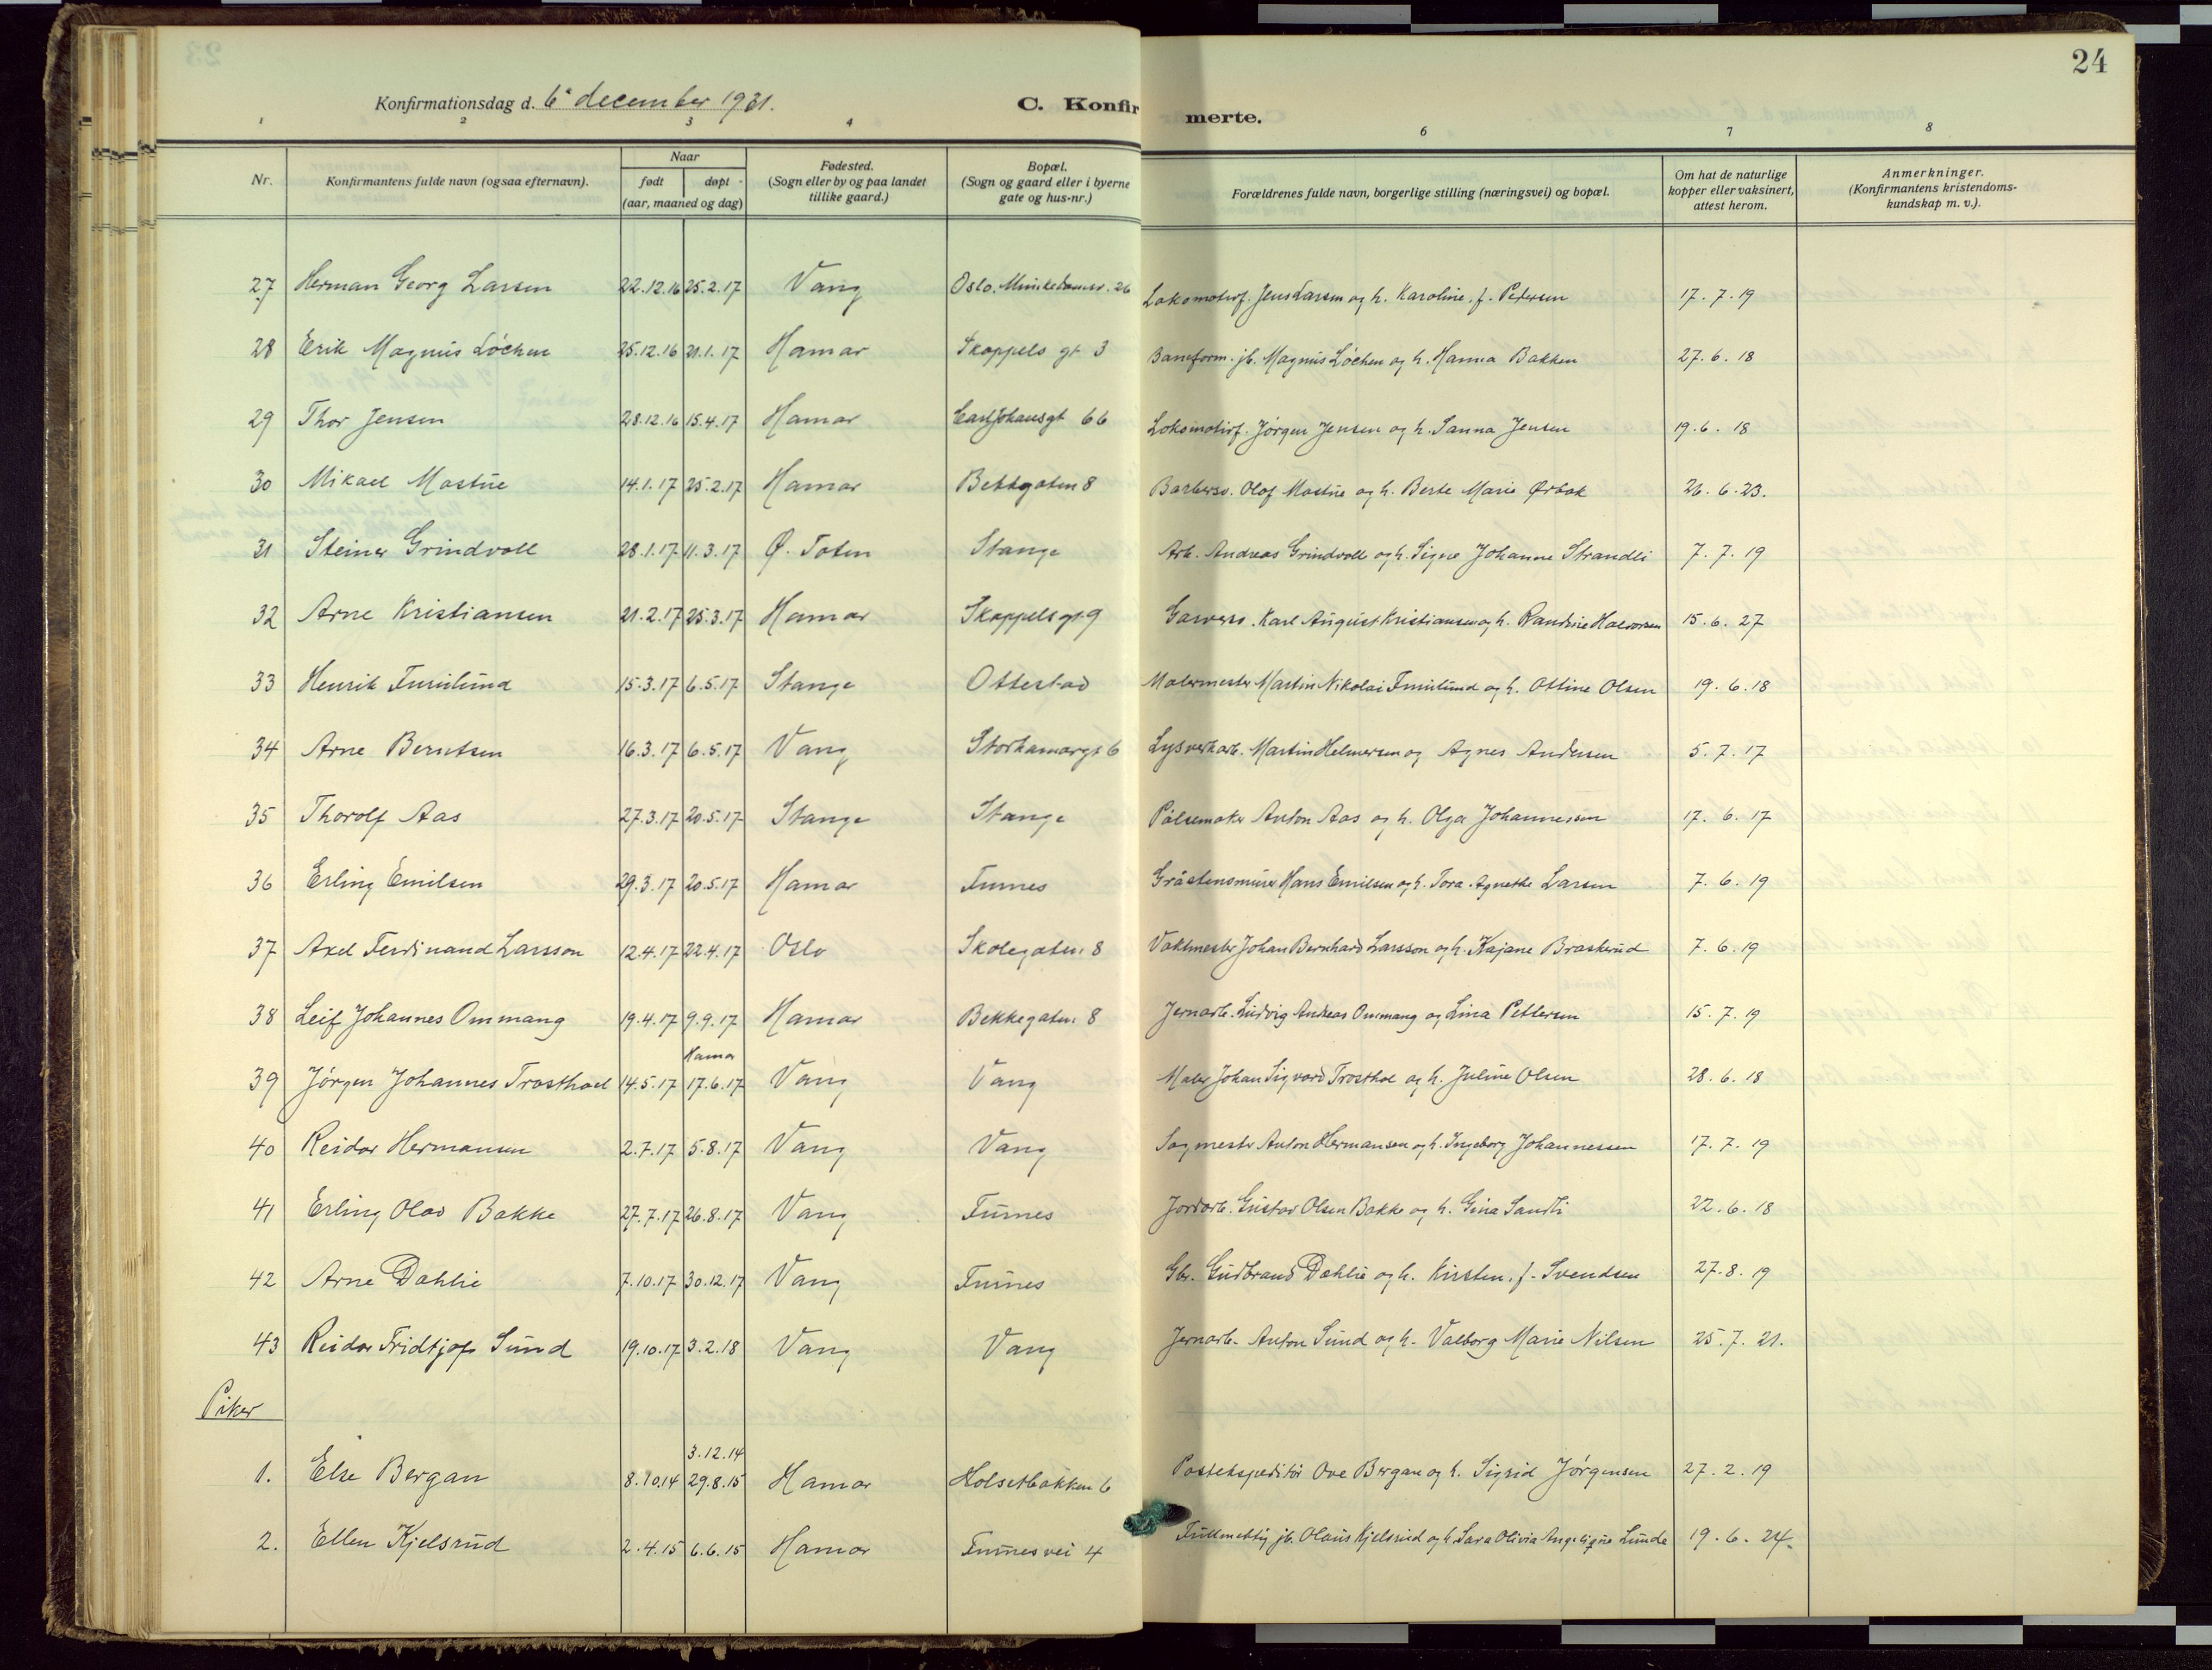 24
Konfirmationsdag d. 6' december 1931.
C. Konfirmerte.
1 2 3 4 6 7 8
Nr. Konfirmantens fulde navn (ogsaa efternavn). Naar født døpt (aar, maaned og dag) Fødested. (Sogn eller by og paa landet tillike gaard.) Bopæl. (Sogn og gaard eller i byerne gate og hus-nr.) Forældrenes fulde navn, borgerlige stilling (næringsvei) og bopæl. Om hat de naturlige kopper eller vaksinert, attest herom. Anmerkninger. (Konfirmantens kristendomskundskap m. v.).
27 Herman Georg Larsen 22.12.16 25.2.17 Vang Oslo. 26 Lokomotivf. Jens Larsen og h. Karoline, f. Petersen 17.7.19
28 Erik Magnus Løchen 25.12.16 21.1.17 Hamar Skappels gt 3 Baneform. jb. Magnus Løchen og h. Hanna Bakken 27.6.18
29 Thor Jensen 28.12.16 15.4.17 Hamar Carl Johansgt 66 Lokomotivf. Jørgen Jensen og h. Sanna Jensen 19.6.18
30 Mikael Mostue 14.1.17 25.2.17 Hamar Bekkegaten 8 Barbersv. Olof Mostue og h. Berte Marie Ørbak 26.6.23.
31 Steinar Grindvoll 28.1.17 11.3.17 Ø. Toten Stange Arb. Andreas Grindvoll og h. Signe Johanne Strandli 7.7.19
32 Arne Kristiansen 21.2.17 25.3.17 Hamar Skappelsgt. 9 Karl August Kristiansen og h. Randine Halvorsen 15.6.27
33 Henrik Furulund 15.3.17 6.5.17 Stange Ottestad Malermester Martin Nikolai Furulund og h. Ottine Olsen 19.6.18
34 Arne Berntsen 16.3.17 6.5.17 Vang Storhamargt 6 Lysverkarb. Martin Helmersen og Agnes Andersen 5.7.17
35 Thorolf Aas 27.3.17 20.5.17 Stange Stange Pølsemaker Anton Aas og h. Olga Johannessen 17.6.17
36 Erling Emilsen 29.3.17 20.5.17 Hamar Furnes Gråstensmurer Hans Emilsen og h. Tora Agnethe Larsen 7.6.19
37 Axel Ferdinand Larsson 12.4.17 22.4.17 Oslo Skolegaten 8 Vaktmester Johan Bernhard Larsson og h. Kajane Braskerud 7.6.19
38 Leif Johannes Ommang 19.4.17 9.9.17 Hamar Bekkegaten 8 Jernarb. Ludvig Andreas Ommang og Lina Pettersen 15.7.19
Hamar
39 Jørgen Johannes Trosthoel 14.5.17 17.6.17 Vang Vang Maler Johan Sigvard Trosthoel og h. Juline Olsen 28.6.18
40 Reidar Hermansen 2.7.17 5.8.17 Vang Vang Sagmester Anton Hermansen og h. Ingeborg Johannessen 17.7.19
41 Erling Olav Bakke 27.7.17 26.8.17 Vang Furnes Jordarb. Gustav Olsen Bakke og h. Gina Sandli 22.6.18
42 Arne Dahlie 7.10.17 30.12.17 Vang Furnes Gbr. Gudbrand Dahlie og h. Kirsten, f. Svendsen 27.8.19
43 Reidar Fridtjof Sund 19.10.17 3.2.18 Vang Vang Jernarb. Anton Sund og h. Valborg Marie Nilsen 25.7.21.
Piker
3.12.14
1. Else Bergan 8.10.14 29.8.15 Hamar Holsetbakken 6 Postekspeditør Ove Bergan og h. Sigrid Jørgensen 27.2.19
2. Ellen Kjelsrud 2.4.15 6.6.15 Hamar Furnesvei 4 Fullmektig jb. Olaus Kjelsrud og h. Sara Olivia Angeligue Lunde 19.6.24.